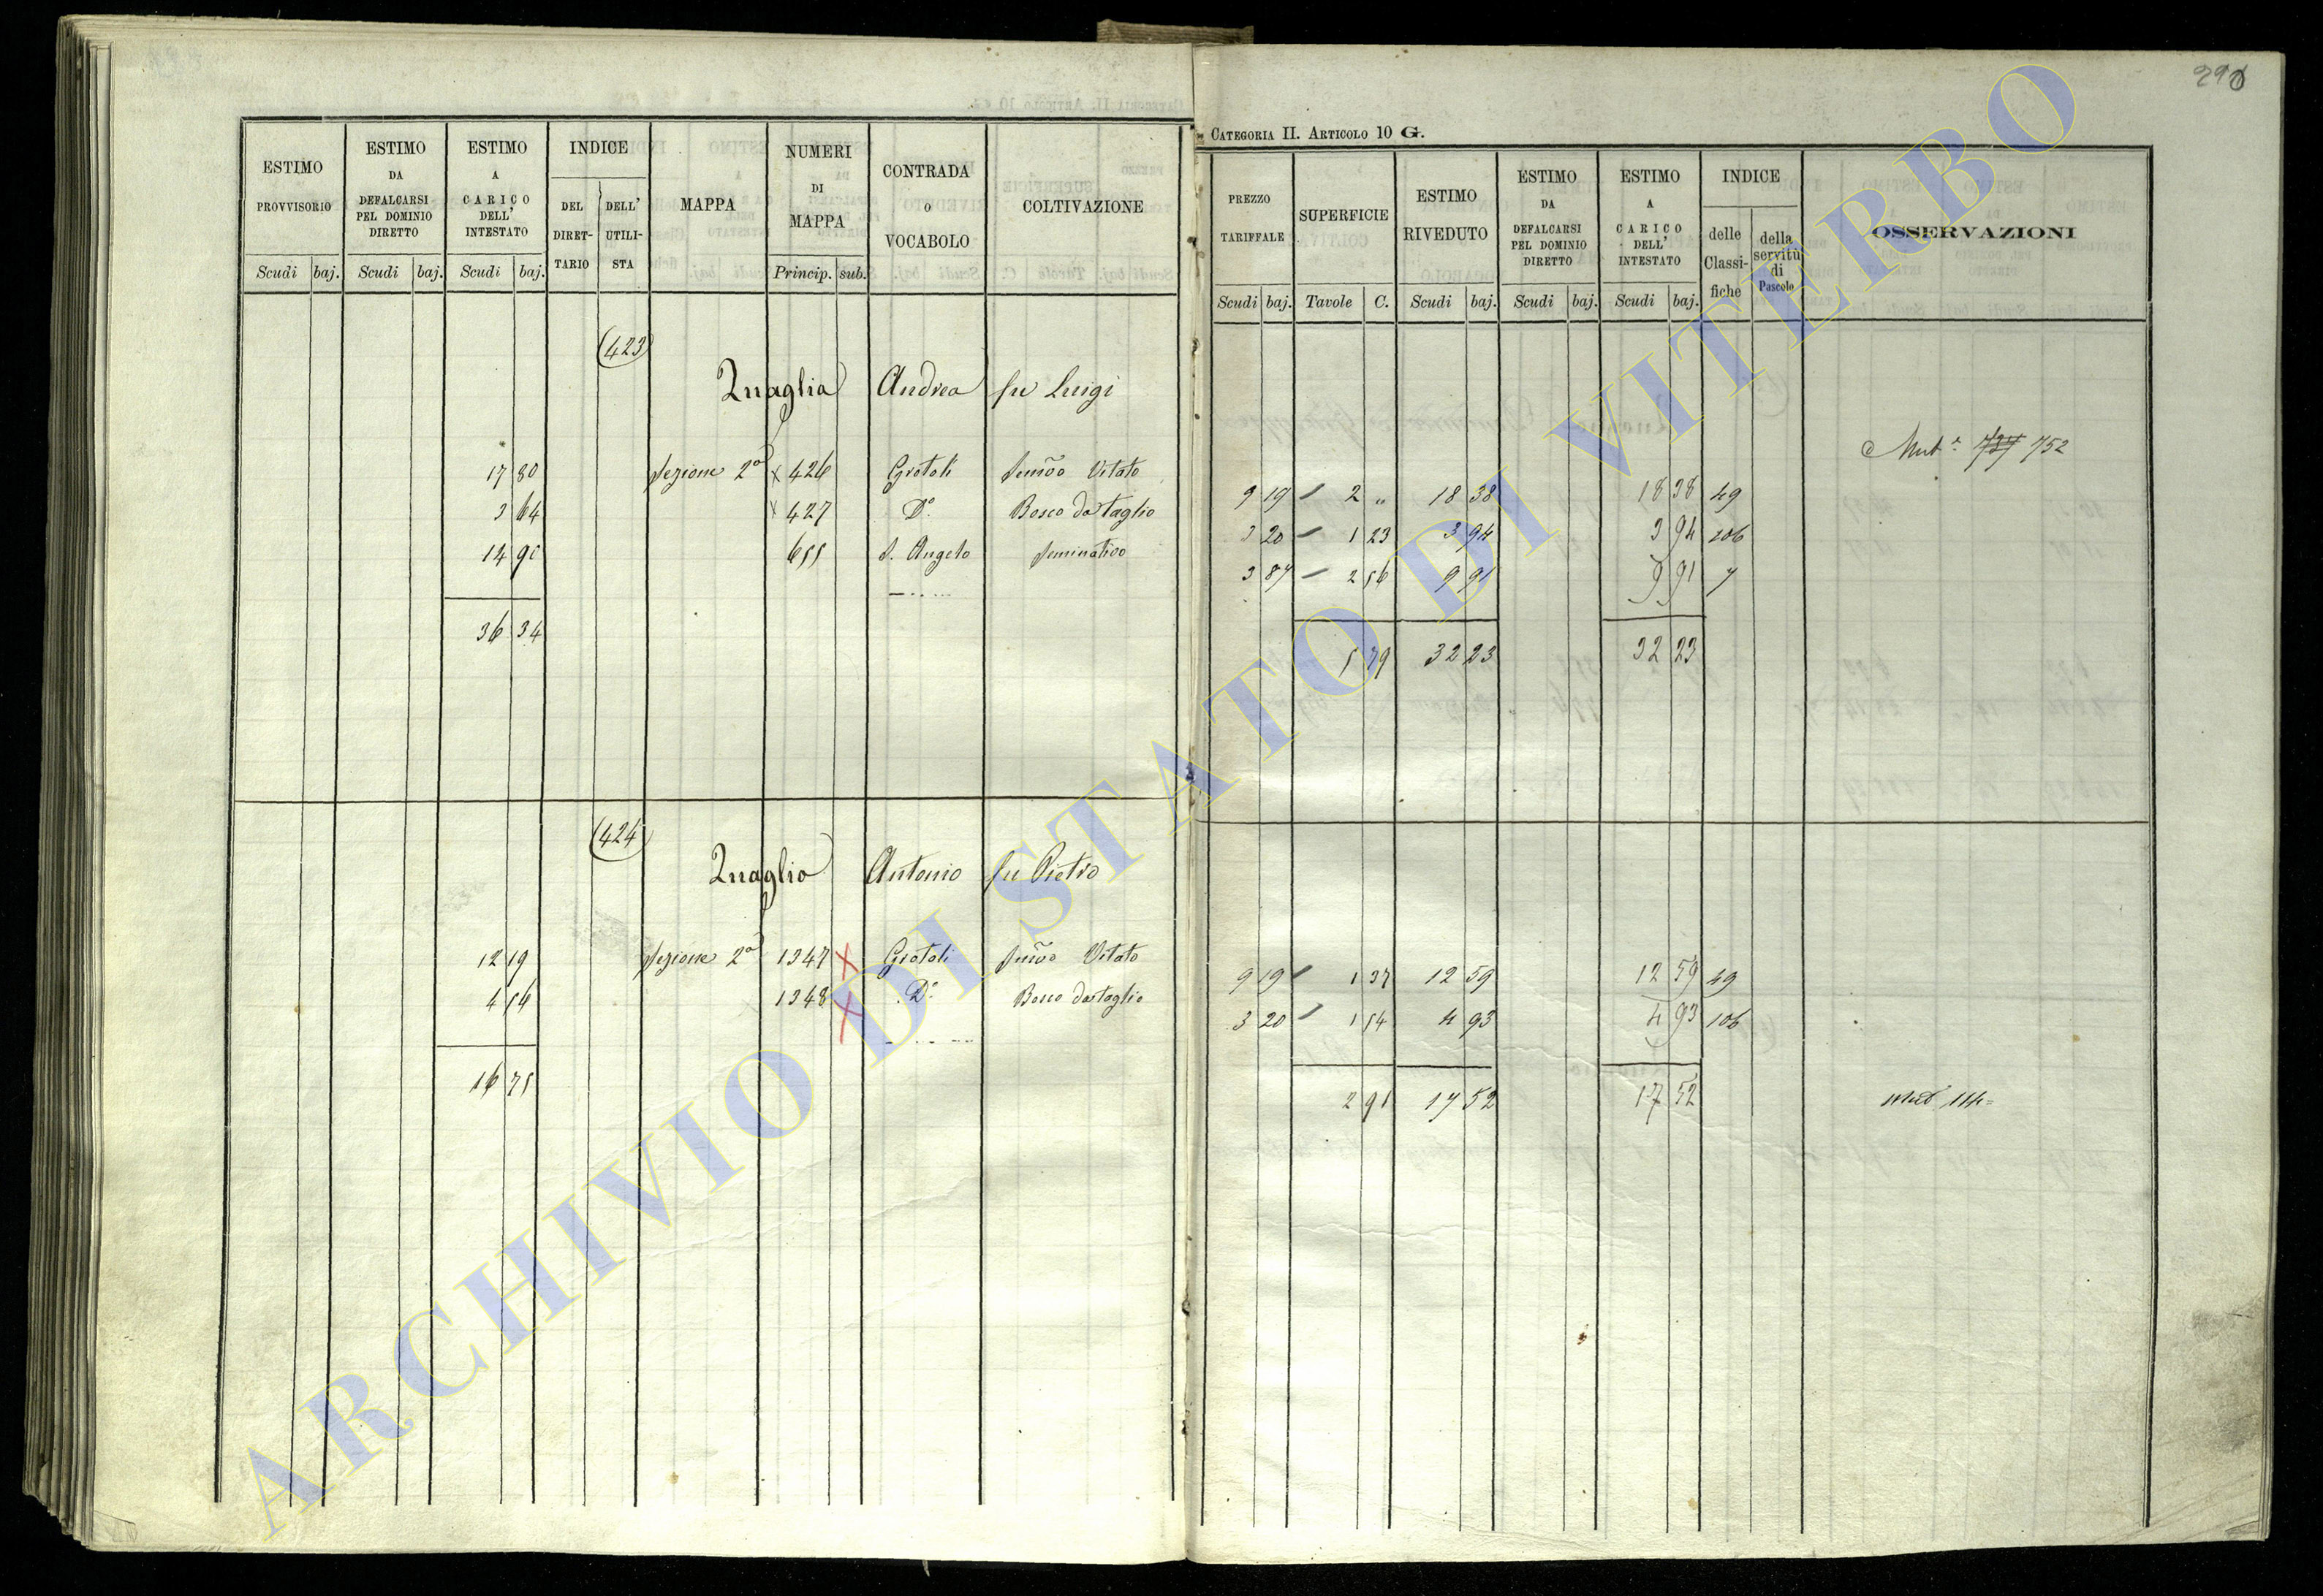 290
CATEGORIA II. ARTICOLO 10 G.
ESTIMO PROVVISORIO
ESTIMO DA DEFALCARSI PEL DOMINIO DIRETTO
ESTIMO A CARICO DELL' INTESTATO
INDICE
DEL DIRETTARIO
DELL' UTILISTA
MAPPA
NUMERI DI MAPPA
CONTRADA o VOCABOLO
COLTIVAZIONE
Scudi baj. Scudi baj. Scudi baj. Princip. sub.
PREZZO TARIFFALE
SUPERFICIE
ESTIMO RIVEDUTO
ESTIMO DA DEFALCARSI PEL DOMINIO DIRETTO
ESTIMO A CARICO DELL' INTESTATO
INDICE
delle Classifiche
della servitù di Pascolo
OSSERVAZIONI
Scudi baj. Tavole C. Scudi baj. Scudi baj. Scudi baj.
(423)
Quaglia Andrea fu Luigi
Mut.e 737 752
17 80 Sezione 2a x 426 Grotoli Semõo Vitato 9 19 2 „ 18 38 18 38 49
3 64 x 427 D.o Bosco da taglio 3 20 1 23 3 94 3 94 106
14 90 655 S. Angelo Seminativo 3 87 2 56 9 91 9 91 7
36 34 5 79 32 23 32 23
(424)
Quaglia Antonio fu Pietro
12 19 Sezione 2a 1347 x Grotoli Semõo Vitato 9 19 1 37 12 59 12 59 49
4 56 1348 x D.o Bosco da taglio 3 20 1 54 4 93 4 93 106
16 75 2 91 17 52 17 52 Mut 114=
ARCHIVIO DI STATO DI VITERBO